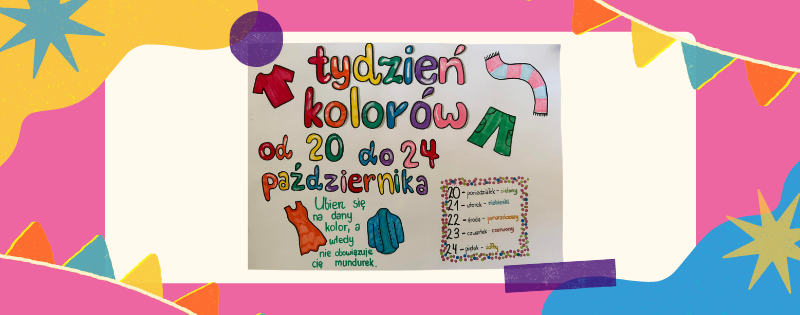 tydzień
kolorów
od 20 do 24
października
Ubierz się
na dany
kolor, a
wtedy
nie obowiązuje
cię mundurek.
20 - poniedziałek - zielony
21 - wtorek - niebieski
22 - środa - pomarańczowy
23 - czwartek - czerwony
24 - piątek - żółty